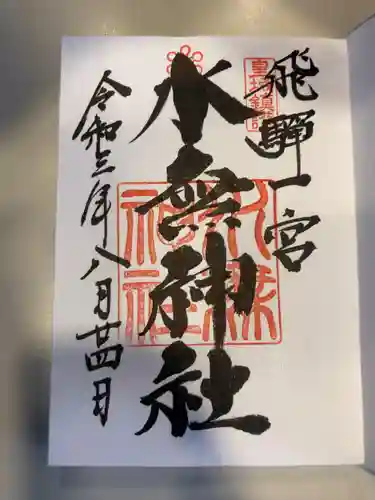 飛驒一宮
水無神社
令和三年八月廿四日
水無
神社